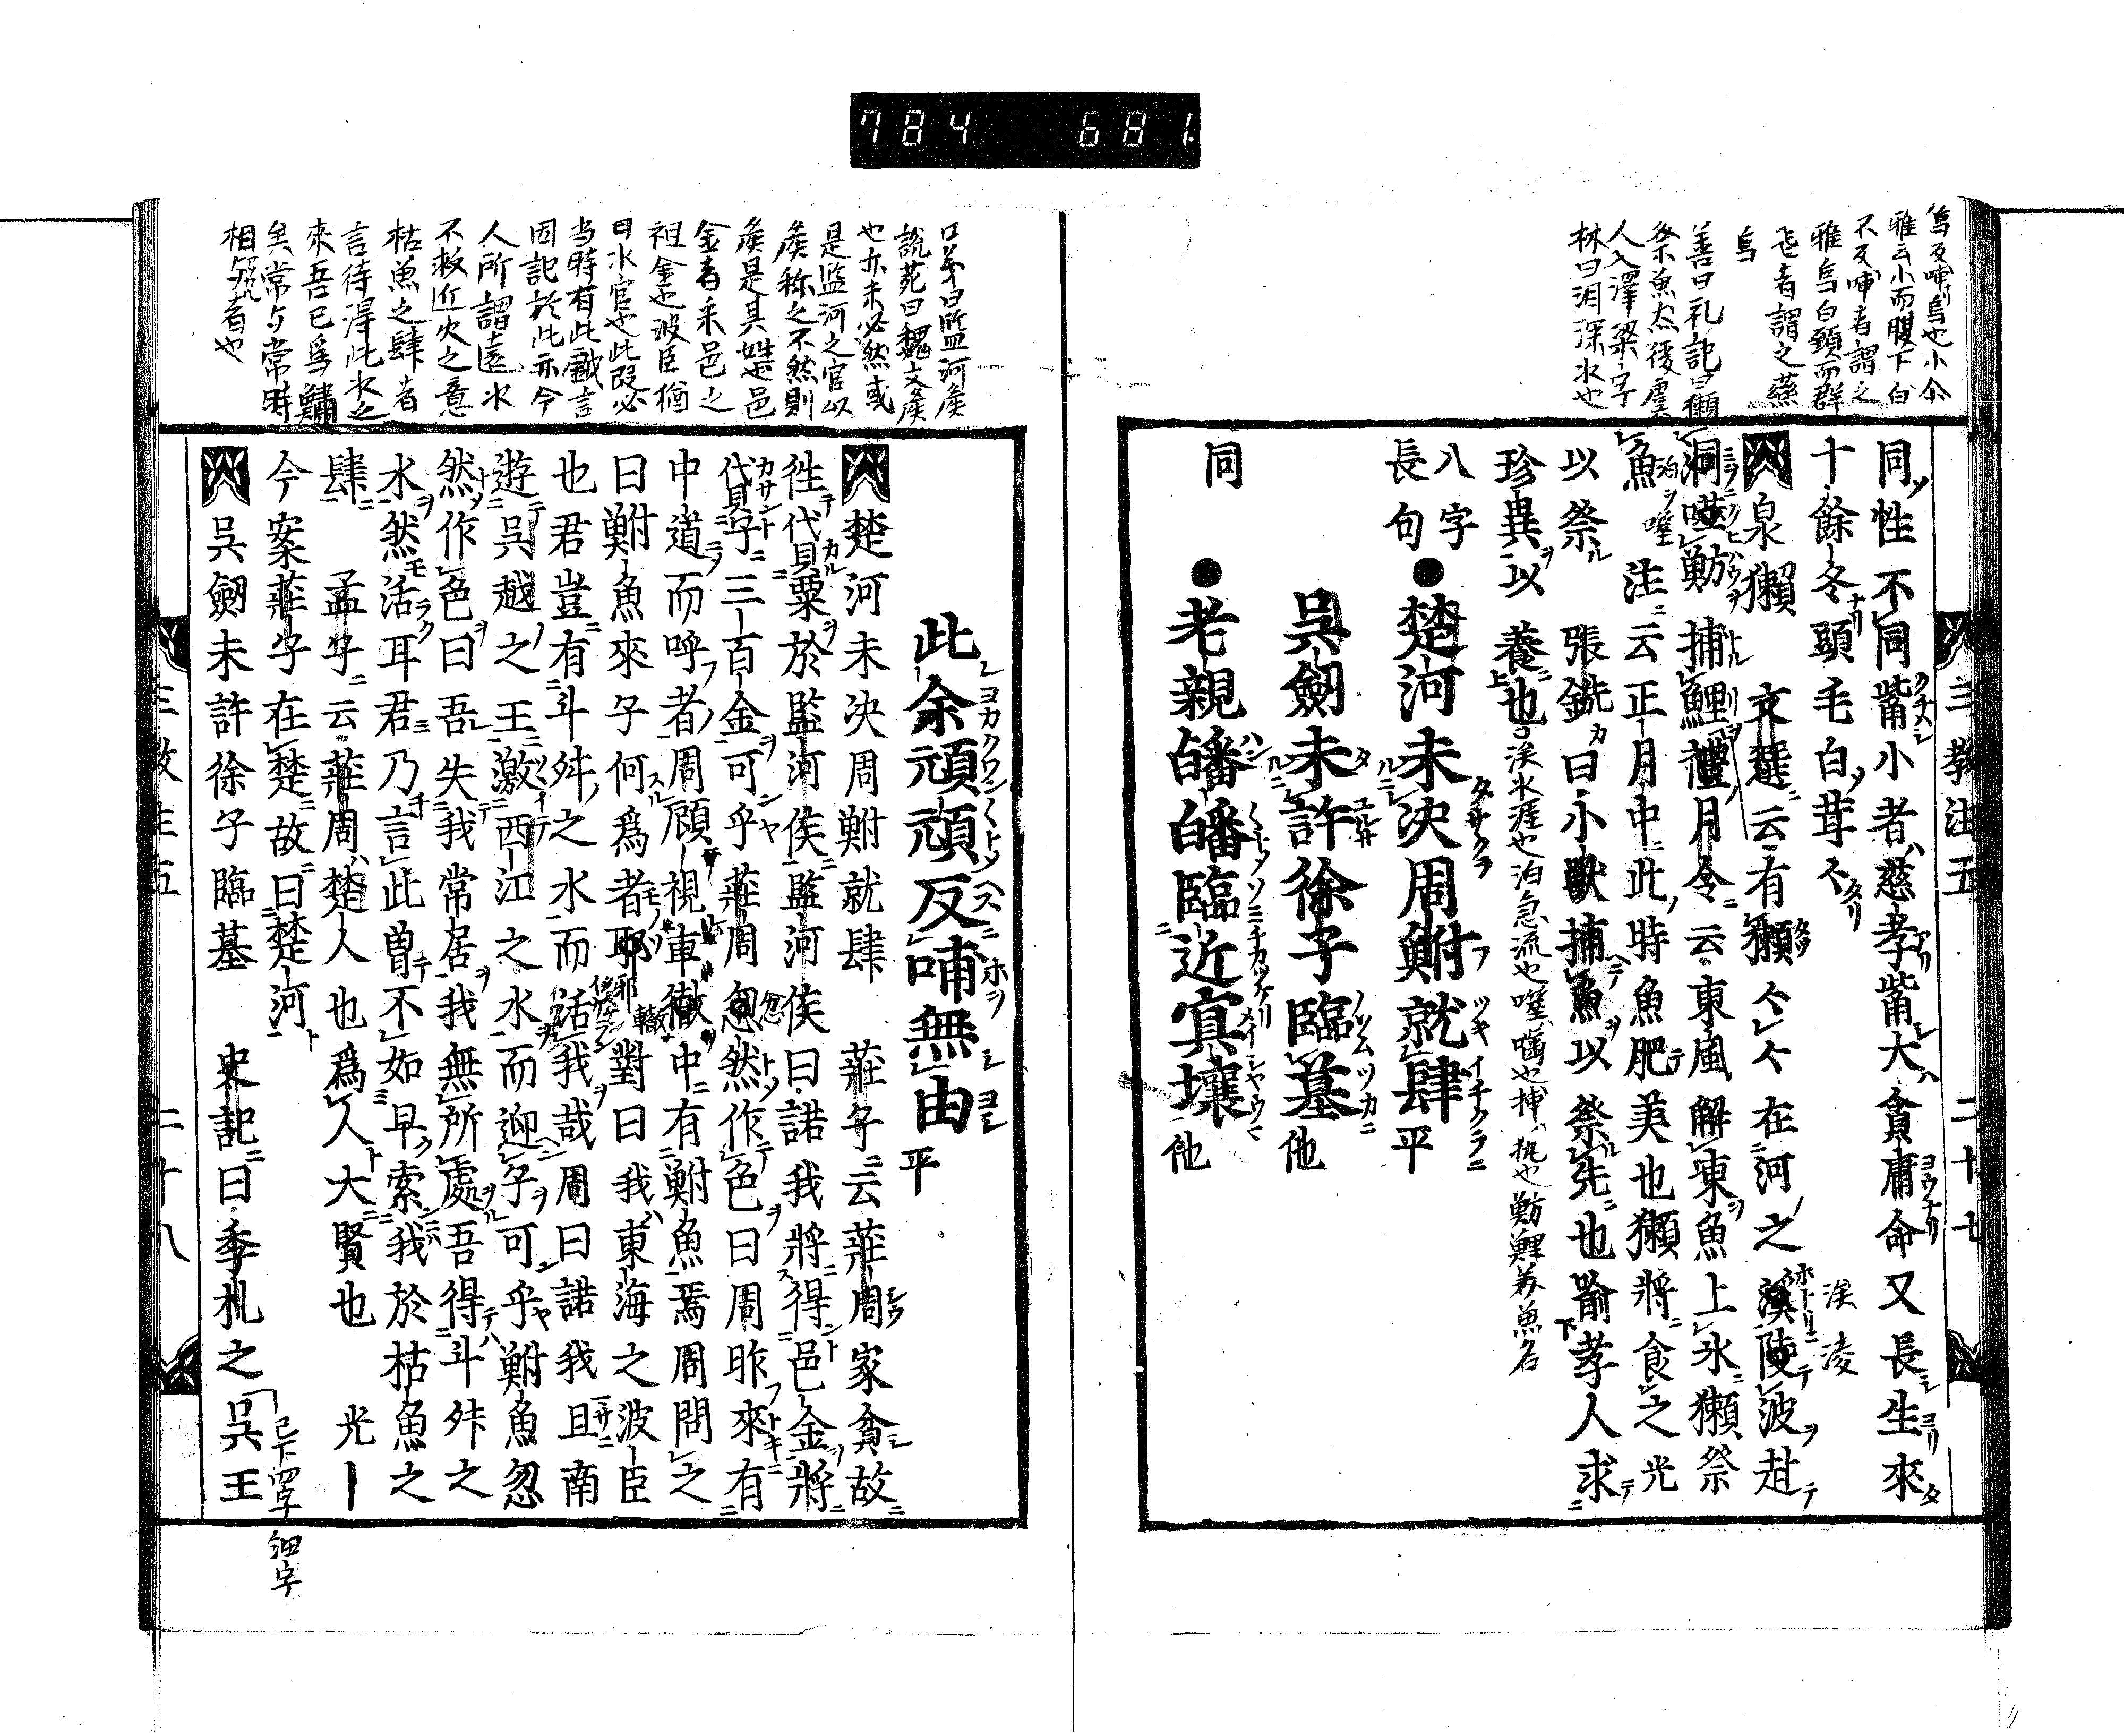 784 681.
烏反哺烏也小尒
雅云小而腹下白
不反哺者謂之
雅烏白頸而群
飛者謂之燕
烏
善曰礼記曰獺
祭魚然後虞
人入澤梁字
林曰洞深水也
三教注五 二十七
同性不同觜小者慈孝觜大貪庸命又長生來
十餘冬頭毛白茸
泉獺 文選云有獺 在河之 波赴
洞 魴捕鯉禮月令云東風解凍魚上氷獺祭
魚 注云正月中此時魚肥美也獺將食之光
以祭 張銑曰小獸捕魚以祭先也喻孝人求
珍異以養也
涘水涯也泊急流也噬噛也挿執也魴鯉並魚名
八字
長句
●楚河未決周鮒就肆 平
吳劔未許徐子臨墓 他
同
●老親皤皤臨近寘壤 他
口義曰監河矦
說苑曰魏文矦
也亦未必然或
是監河之官以
矦称之不然則
矦是其姓也邑
金者釆邑之
祖金也波臣猶
曰水官也此段必
当時有此戲言
因記於此亦今
人所謂遠水
不救近火之意
枯魚之肆者
言待得此水之
來吾已為鱐
矣常与常時
相与者也
此余頑頑反哺無由 平
楚河未決周鮒就肆 莊子云莊周家貪故
徃貸粟於監河侯監河侯曰諾我將得邑金將
貸子三百金可乎莊周忽然作色曰周昨來有
中道而呼者周顧視車轍中有鮒魚焉周問之
曰鮒魚來子何爲者耶對曰我東海之波臣
也君豈有斗舛之水而活我哉周曰諾我且南
遊吳越之王激西江之水而迎子可乎鮒魚忽
然作色曰吾失我常居我無所處吾得斗舛之
水然活耳君乃言此曽不如早索我於枯魚之
肆 孟子云莊周楚人也爲人大賢也 光
今案莊子在楚故曰楚河
吳劔未許徐子臨墓 史記曰季札之吳王
已下四字細字
三教注五 二十八